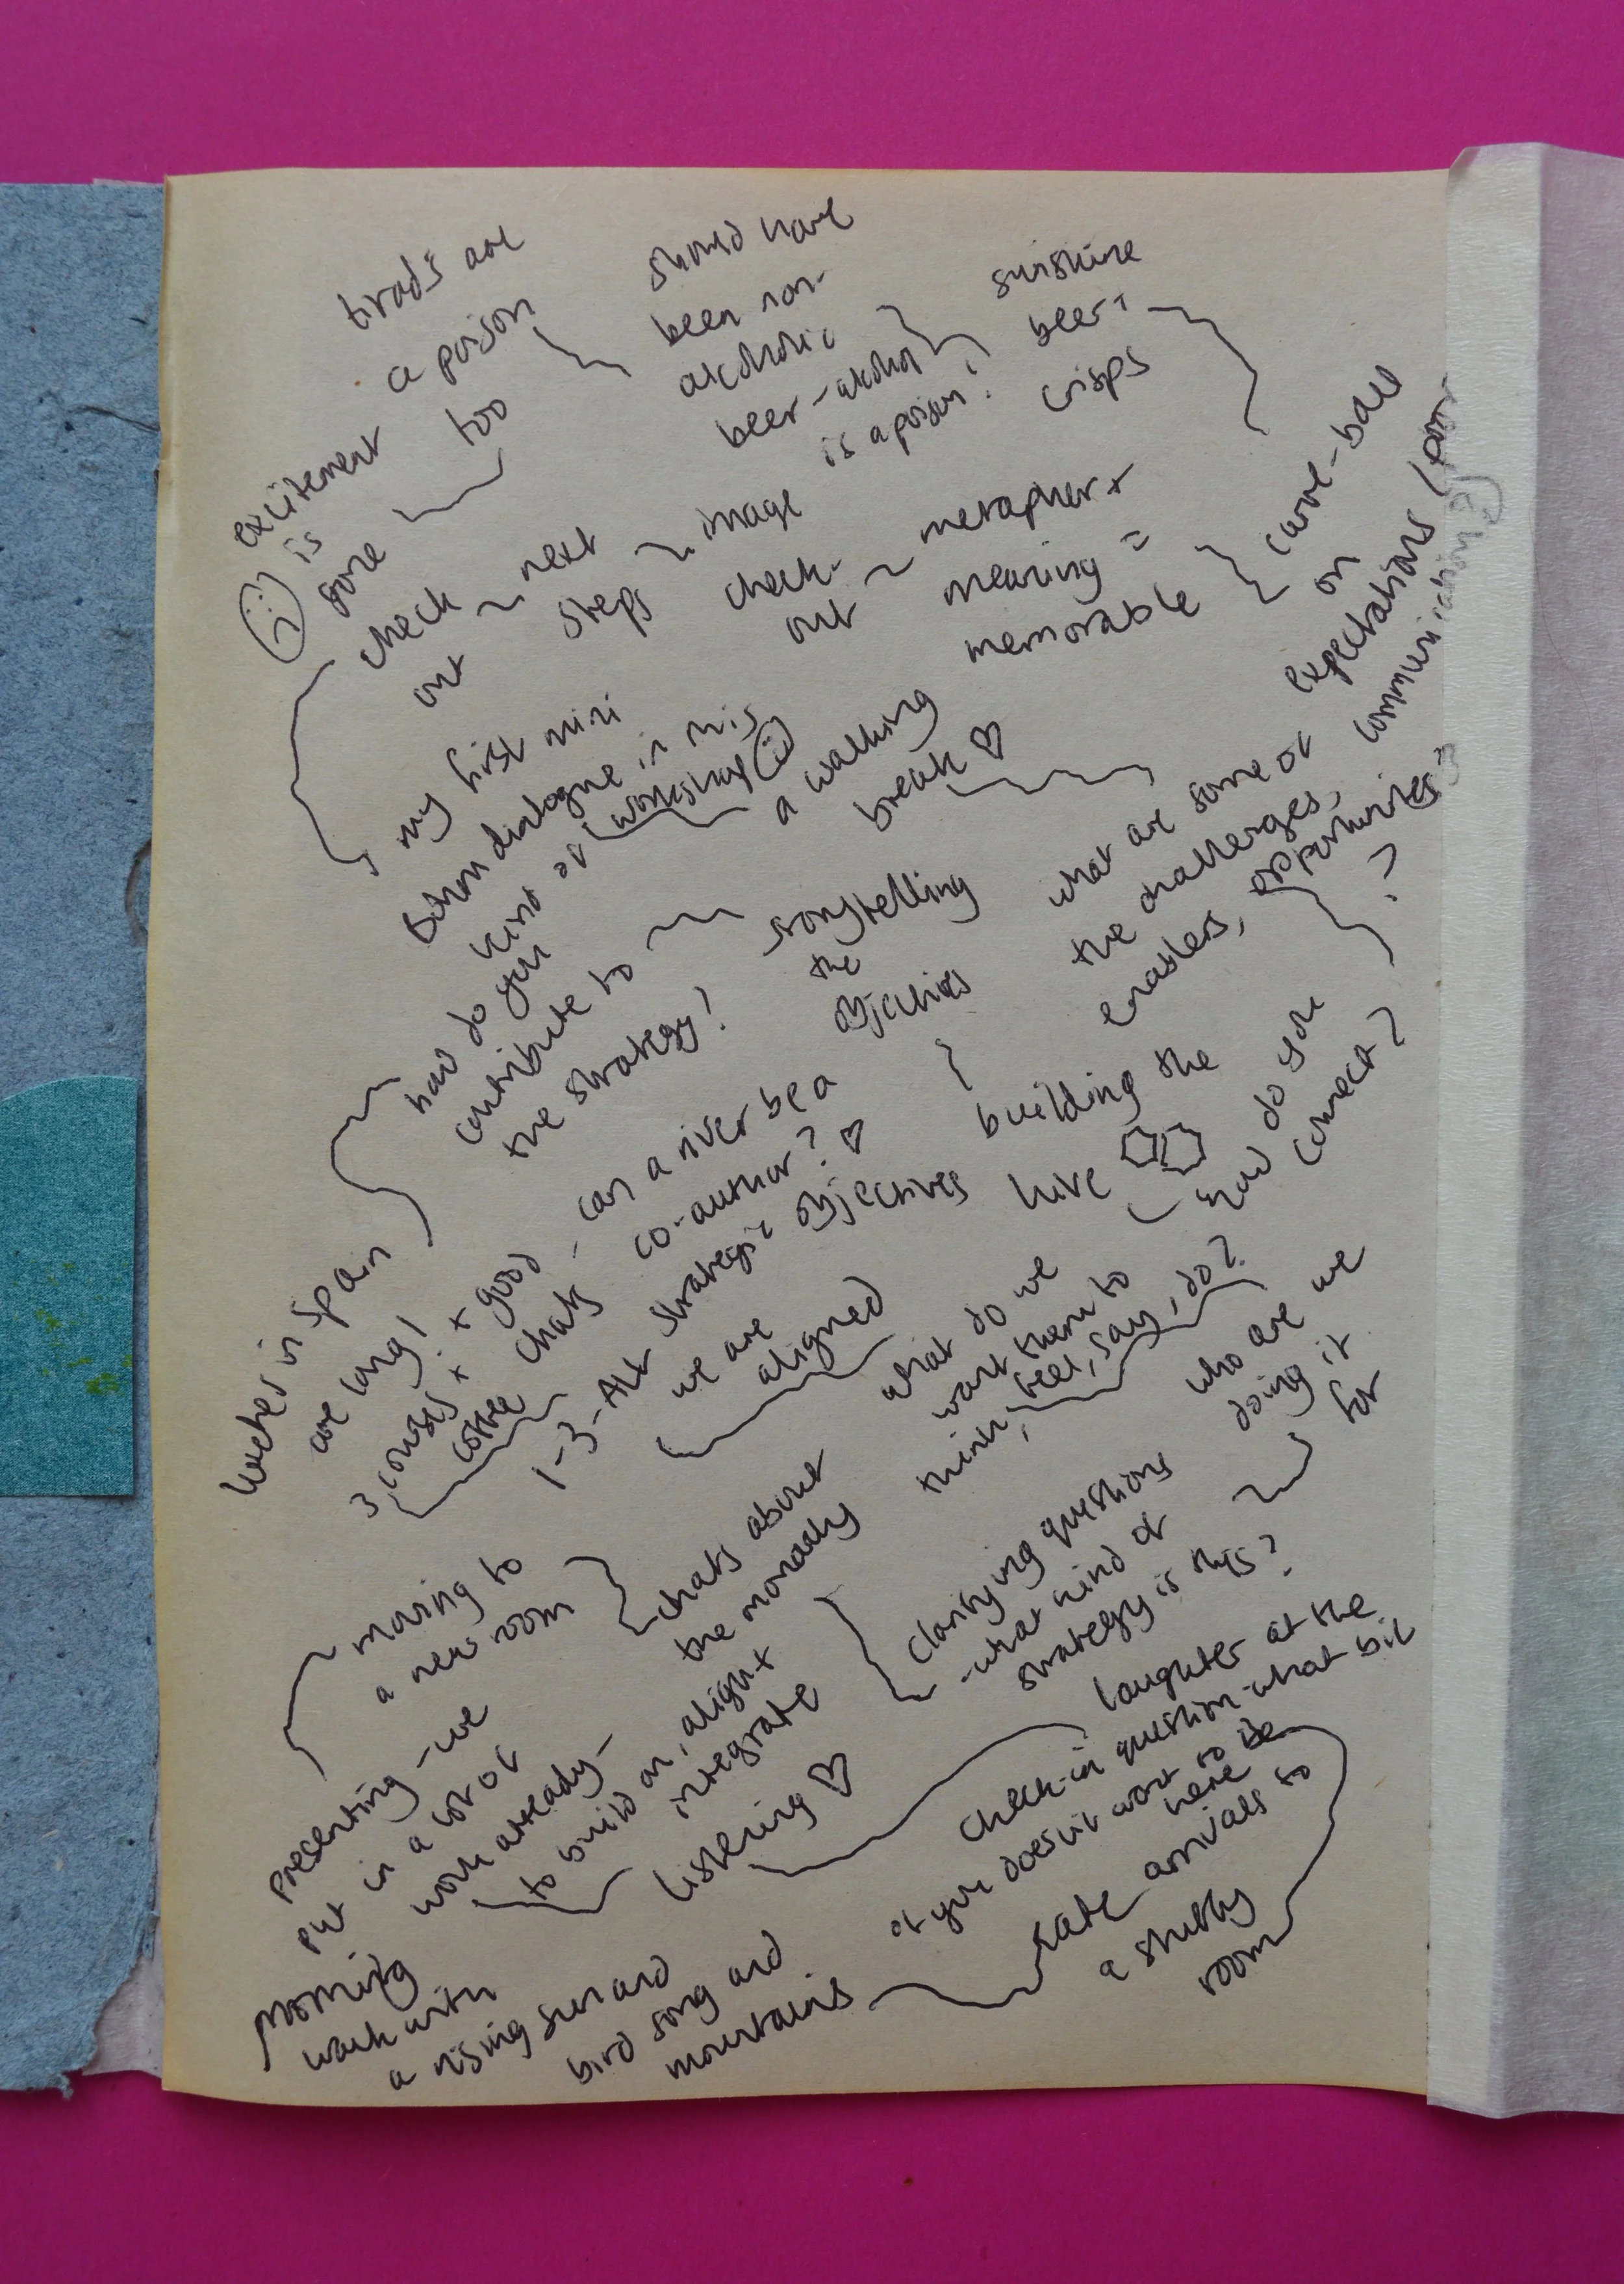 morning
walk with
a rising sun and
bird song and
mountains
late arrivals to
a stuffy
room
laughter at the
check-in question - what bit
of you doesn't want to be
here
listening ♡
presenting - we
put in a lot of
work already -
to build on, align +
integrate
moving to
a new room
chats about
the monarchy
clarifying questions
- what kind of
strategy is this?
who are we
doing it
for
what do we
want them to
think, feel, say, do?
we are
aligned
1-3-ALL
strategic objectives
building the
hive
(how do you
connect?
can a river be a
co-author? ♡
+ good
chats
3 courses +
coffee
lunches in Spain
are long!
how do you
contribute to
the strategy!
storytelling
the
objectives
what are some of
the challenges,
enablers, opportunities
?
a walking
break ♡
my first mini
Bohm dialogue in this
kind of
workshop
check
out
next
steps
image
check-
out
metaphor +
meaning =
memorable
curve-ball
on
expectations
communication?)
sunshine
beer +
crisps
should have
been non-
alcoholic
beer - alcohol
is a poison!
are
a poison
too
excitement
is